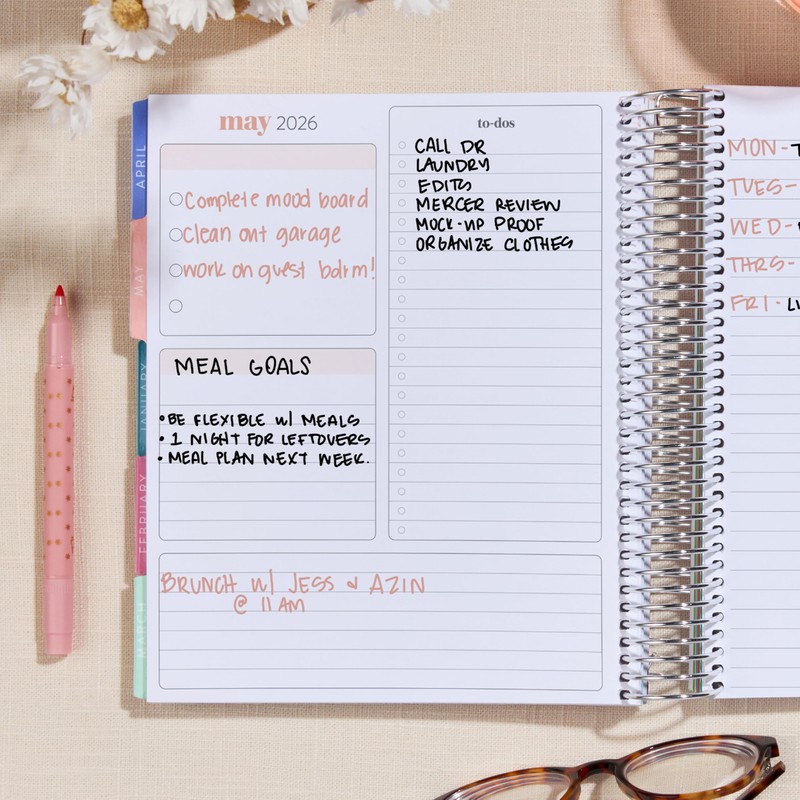 may 2026
Complete mood board
Clean out garage
work on guest bdrm!
MEAL GOALS
• BE FLEXIBLE W/ MEALS
• 1 NIGHT FOR LEFTOVERS
• MEAL PLAN NEXT WEEK.
to-dos
CALL DR
LAUNDRY
EDITS
MERCER REVIEW
MOCK-UP PROOF
ORGANIZE CLOTHES
BRUNCH W/ JESS & AZIN
@ 11 AM
APRIL
MAY
JANUARY
FEBRUARY
MARCH
MON-
TUES-
WED-
THRS-
FRI-